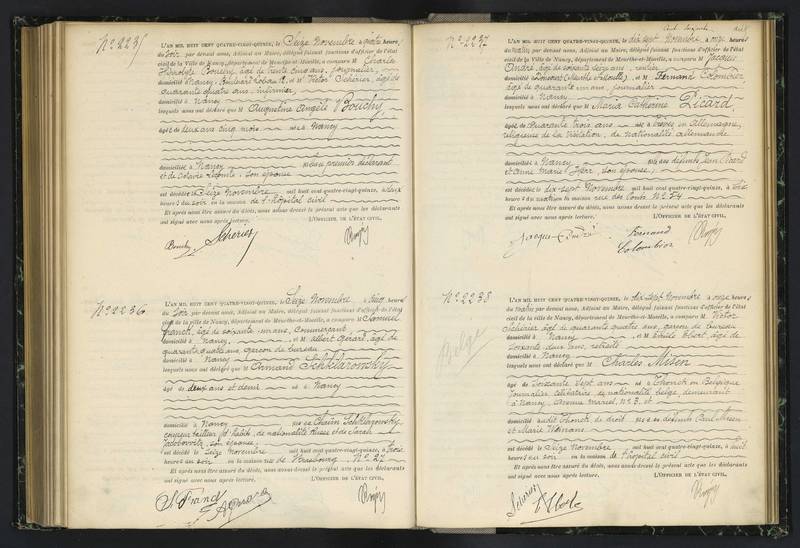 N° 2235
L'AN MIL HUIT CENT QUATRE-VINGT-QUINZE, le Seize Novembre à quatre heures
du soir par devant nous, Adjoint au Maire, délégué faisant fonctions d'officier de l'état
civil de la ville de Nancy, département de Meurthe-et-Moselle, a comparu M Charles
âgé de trente cinq ans, journalier,
domicilié à Nancy, et M Victor Schérier, âgé de
quarante quatre ans, infirmier,
domicilié à Nancy
lesquels nous ont déclaré que M Augustine Angèle Bouchy
âgé de deux ans cinq mois né e à Nancy
domicilié e à Nancy né e du premier déclarant
et de son épouse
est décédé e le Seize Novembre mil huit cent quatre-vingt-quinze, à deux
heures du soir en la maison de l'hôpital civil
Et après nous être assuré du décès, nous avons dressé le présent acte que les déclarants
ont signé avec nous après lecture. L'OFFICIER DE L'ÉTAT CIVIL,
Bouchy Schérier
N° 2236
L'AN MIL HUIT CENT QUATRE-VINGT-QUINZE, le Seize Novembre à cinq heures
du soir par devant nous, Adjoint au Maire, délégué faisant fonctions d'officier de l'état
civil de la ville de Nancy, département de Meurthe-et-Moselle, a comparu M Samuel
Franck, âgé de soixante ans, commerçant,
domicilié à Nancy, et M Albert Gérard, âgé de
quarante quatre ans, garçon de bureau
domicilié à Nancy
lesquels nous ont déclaré que M Armand Schklarowsky
âgé de deux ans et demi né à Nancy
domicilié à Nancy né de Chaïm Schklarowsky,
de nationalité russe et de Sarah
son épouse
est décédé le Seize Novembre mil huit cent quatre-vingt-quinze, à trois
heures du soir en la maison rue de Strasbourg, N° 27
Et après nous être assuré du décès, nous avons dressé le présent acte que les déclarants
ont signé avec nous après lecture. L'OFFICIER DE L'ÉTAT CIVIL,
N° 2237
L'AN MIL HUIT CENT QUATRE-VINGT-QUINZE, le dix sept Novembre à onze heures
du matin par devant nous, Adjoint au Maire, délégué faisant fonctions d'officier de l'état
civil de la ville de Nancy, département de Meurthe-et-Moselle, a comparu M Jacques
André, âgé de soixante ans, rentier
domicilié à (Meurthe & Moselle), et M Fernand Colombier
âgé de quarante ans, journalier
domicilié à Nancy
lesquels nous ont déclaré que M Maria Catherine Picard,
âgé de quarante trois ans née à Trèves, en Allemagne,
religieuse de la Visitation, de nationalité allemande
domicilié e à Nancy né e des défunts Jean Picard
et Anne Marie son épouse,
est décédé e le dix-sept Novembre mil huit cent quatre-vingt-quinze, à
heures du matin en la maison rue N° 54
Et après nous être assuré du décès, nous avons dressé le présent acte que les déclarants
ont signé avec nous après lecture. L'OFFICIER DE L'ÉTAT CIVIL,
Jacque André Fernand
Colombier
N° 2238
Belge
L'AN MIL HUIT CENT QUATRE-VINGT-QUINZE, le dix sept Novembre à onze heures
du matin par devant nous, Adjoint au Maire, délégué faisant fonctions d'officier de l'état
civil de la ville de Nancy, département de Meurthe-et-Moselle, a comparu M Victor
Schérier, âgé de quarante quatre ans, garçon de bureau
domicilié à Nancy, et M Émile âgé de
soixante deux ans, retraité
domicilié à Nancy
lesquels nous ont déclaré que M Charles Misen
âgé de soixante sept ans né à en Belgique
journalier célibataire de nationalité belge, demeurant
à Nancy, N° 3, et
domicilié audit de droit né des défunts Paul Misen
& Marie
est décédé le Seize Novembre mil huit cent quatre-vingt-quinze, à huit
heures du soir en la maison de l'hôpital civil
Et après nous être assuré du décès, nous avons dressé le présent acte que les déclarants
ont signé avec nous après lecture. L'OFFICIER DE L'ÉTAT CIVIL,